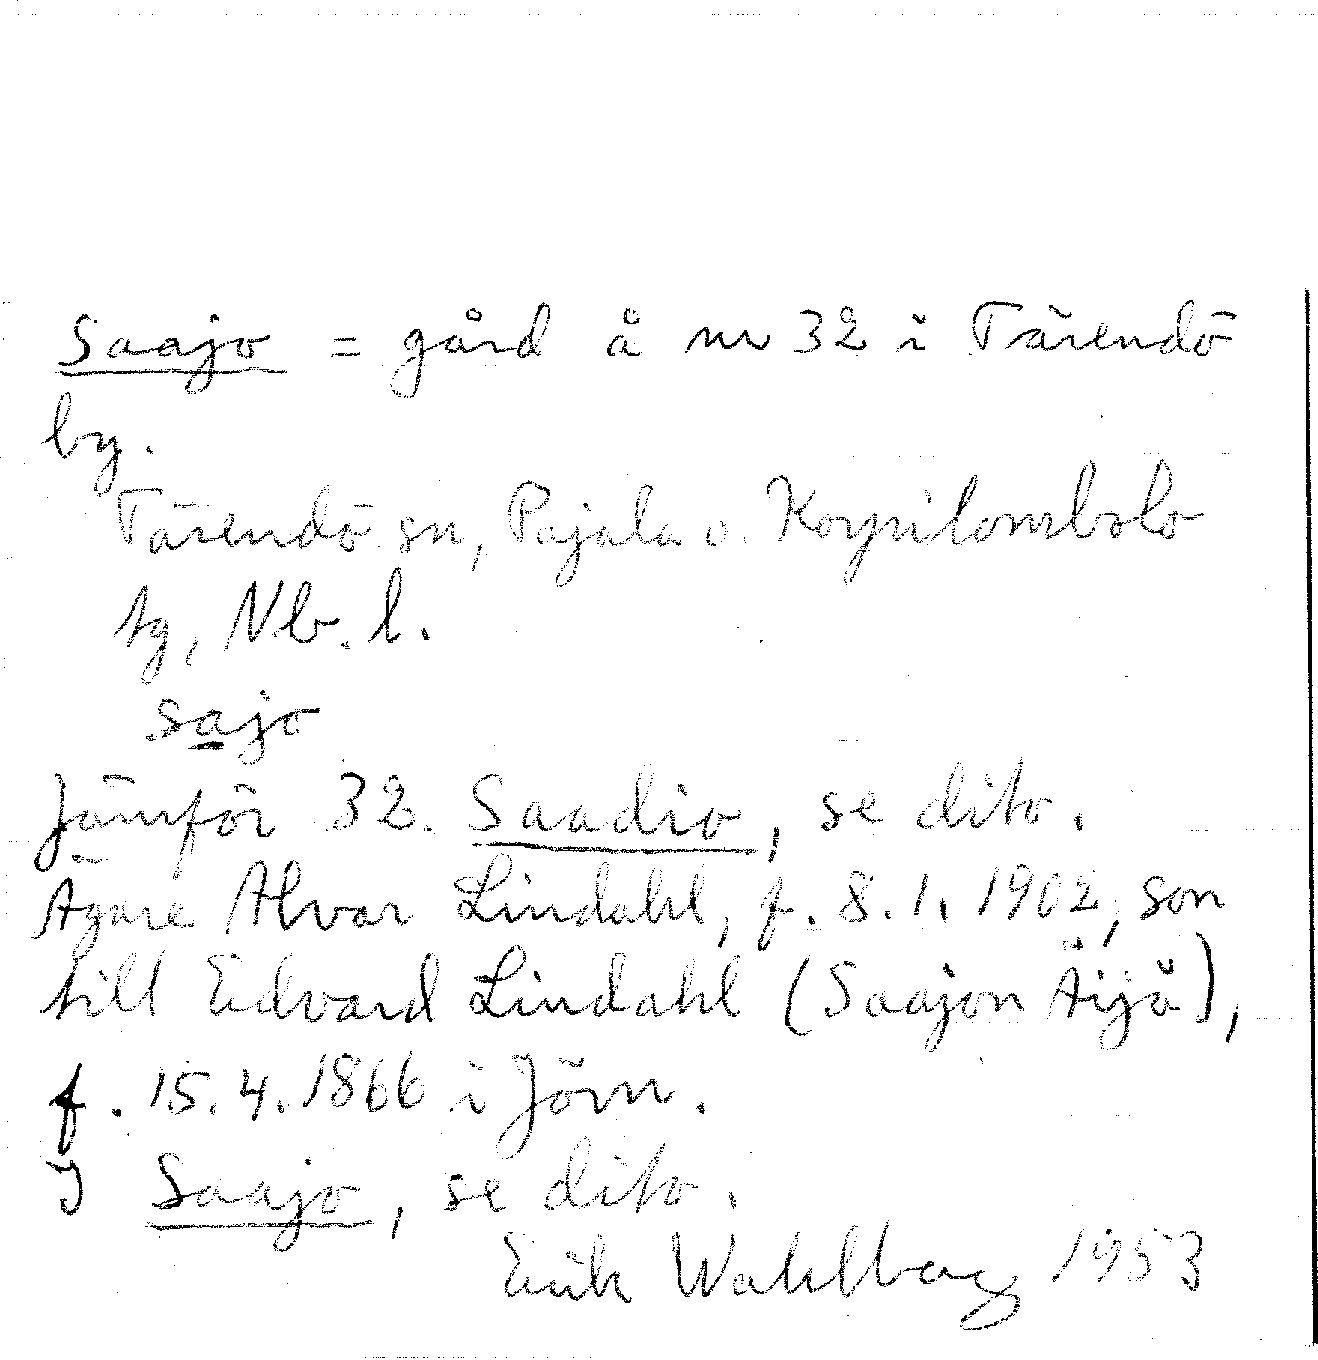 Saajo = gård å nr 32 i Tärendö
by.
Tärendö sn, Pajala o. Korpilombolo
tg, Nb. l.
sajo
Jämför 32. Saadio, se dito.
Ägare Alvar Lindahl, f. 8.1. 1902, son
till Edvard Lindahl (Saajon Äijä),
f. 15.4.1866 i Jörn.
I Saajo, se dito.
Erik Wahlberg 1953